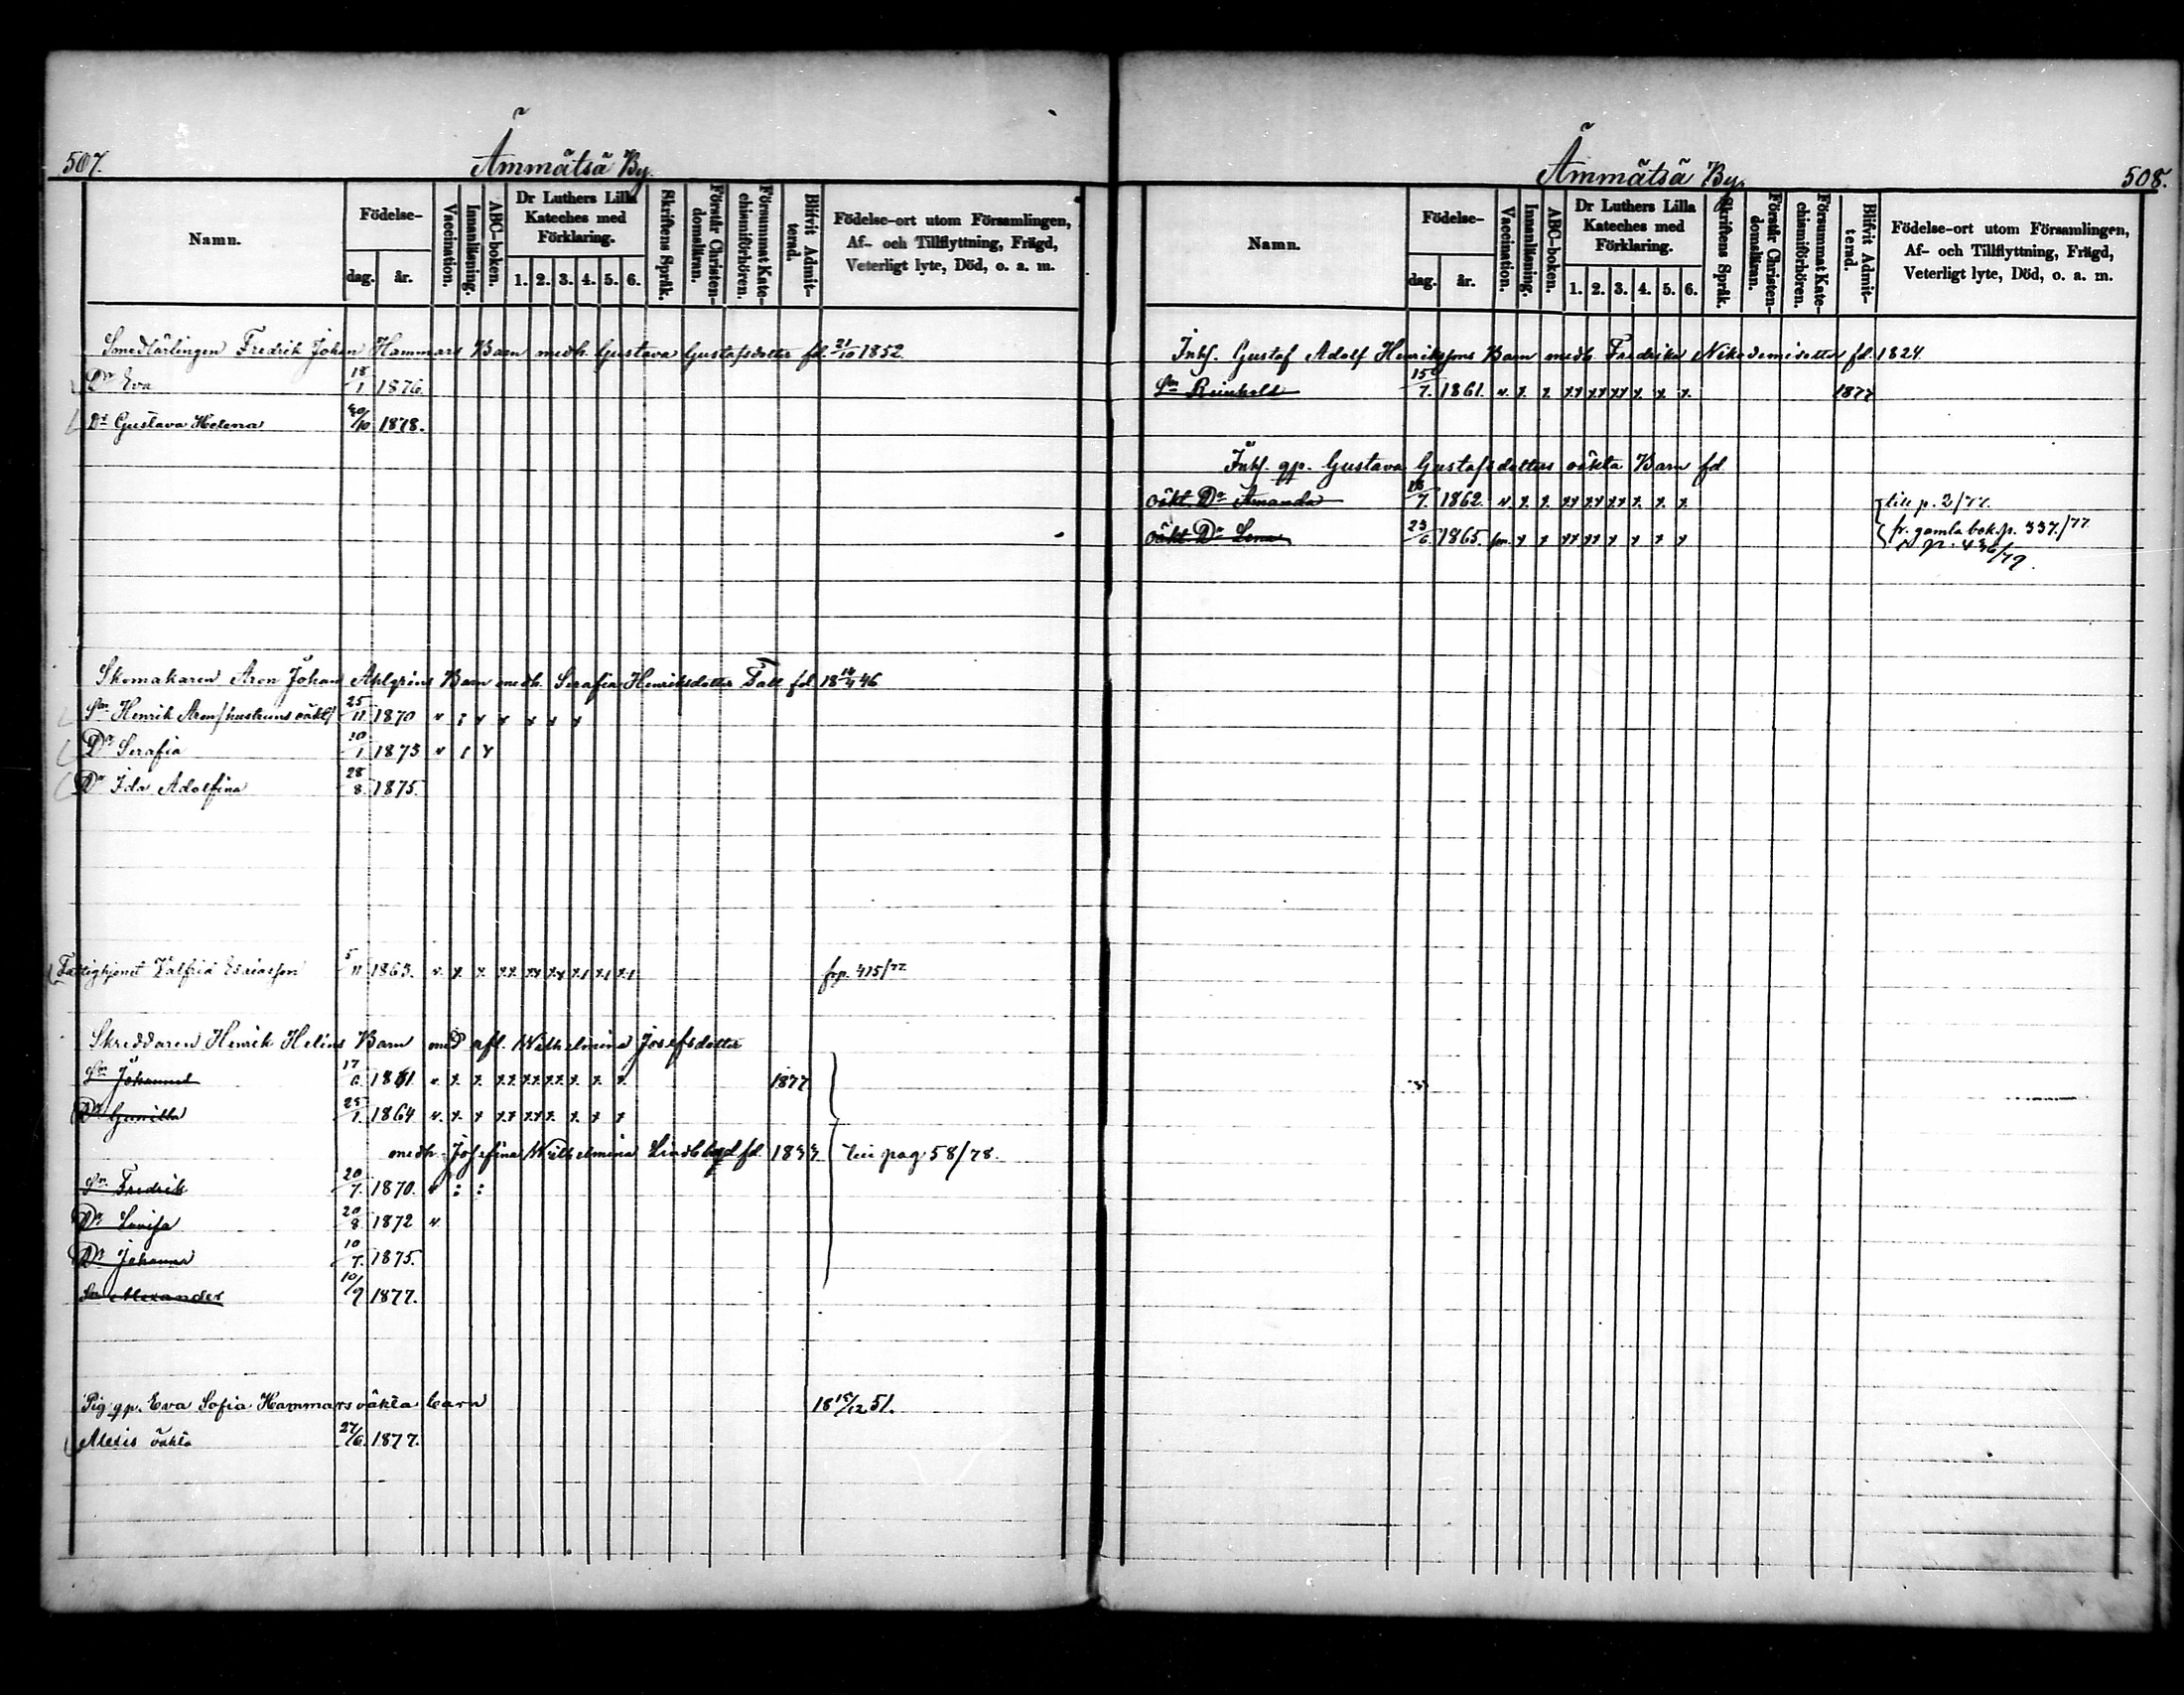 507.
Ämmätsä By.
Namn.
Födelse-
dag.
år.
Vaccination.
Innanläsning.
ABC-boken.
Dr Luthers Lilla Kateches med Förklaring.
1. 2. 3. 4. 5. 6.
Skriftens Språk.
Förstår Christendomsläran.
Försummat Katechismiförhören.
Blifvit Admitterad.
Födelse-ort utom Församlingen, Af- och Tillflyttning, Frägd, Veterligt lyte, Död, o. a. m.
Smedlärlingen Fredrik Johan Hammars Barn medh. Gustava Gustafsdotter fd. 21/10 1852
Dr Eva 18/1 1876.
Dr Gustava Helena 30/10 1878.
Skomakaren Aron Johan Ahlgrins Barn medh. Serafia Henriksdotter Tall fd. 18 14/4 46
Sn Henrik Aron/hustruns oäkt/ 25/11 1870
Dr Serafia 10/1 1873
Dr Ida Adolfina 28/8 1875.
Fattighjonet Valfrid Esaiasson 5/11 1863. frp. 415/77
Skreddaren Henrik Helins Barn med afl. Wilhelmina Josefsdotter
Sn Johannes 17/6 1861 1877
Dr Gunilla 25/1 1864
medh. Josefina Wilhelmina Lindblad fd. 1833 till pag 58/78.
Sn Fredrik 20/7. 1870.
Dr Lovisa 20/8 1872
Dr Johanna 10/7. 1875.
Sn Alexander 10/9 1877.
Pig. gp. Eva Sofia Hammars oäkta barn 18 15/12 51.
Alexis oäkta 27/6. 1877.
Ämmätsä By.
508.
Namn.
Födelse-
dag.
år.
Vaccination.
Innanläsning.
ABC-boken.
Dr Luthers Lilla Kateches med Förklaring.
1. 2. 3. 4. 5. 6.
Skriftens Språk.
Förstår Christendomsläran.
Försummat Katechismiförhören.
Blifvit Admitterad.
Födelse-ort utom Församlingen, Af- och Tillflyttning, Frägd, Veterligt lyte, Död, o. a. m.
Inhs. Gustaf Adolf Henrikssons Barn medh. Fredrika Nikodemidotter fd. 1824
Sn Reinhold 15/7. 1861. 1877
Inhs. gp. Gustava Gustafsdotters oäkta Barn fd
oäkt. Dr Amanda 18/7. 1862. till p. 2/77.
oäkt. Dr Lena 23/6. 1865. fr. gamla bok. p. 337./77
p. 436/79.